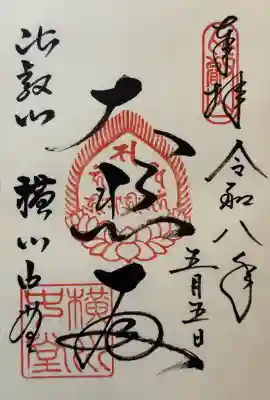 奉拝
令和八年
五月五日
大悲殿
比叡山 横川中堂
横川
中堂